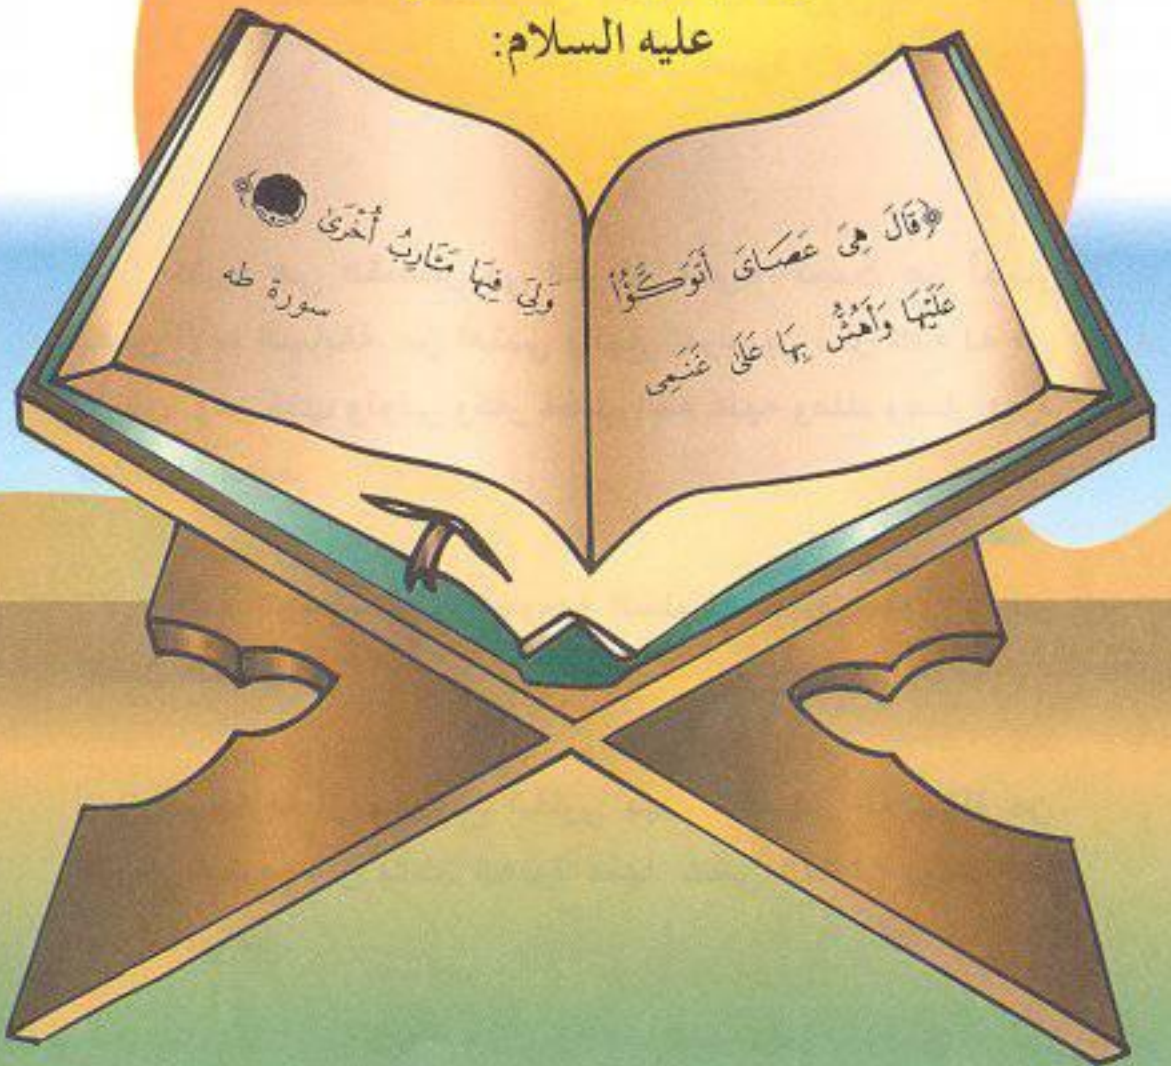 عليه السلام:
﴿قَالَ هِيَ عَصَايَ أَتَوَكَّؤُا
عَلَيْهَا وَأَهُشُّ بِهَا عَلَى غَنَمِي
وَلِيَ فِيهَا مَـَٔارِبُ أُخْرَىٰ ﴾
سورة طه